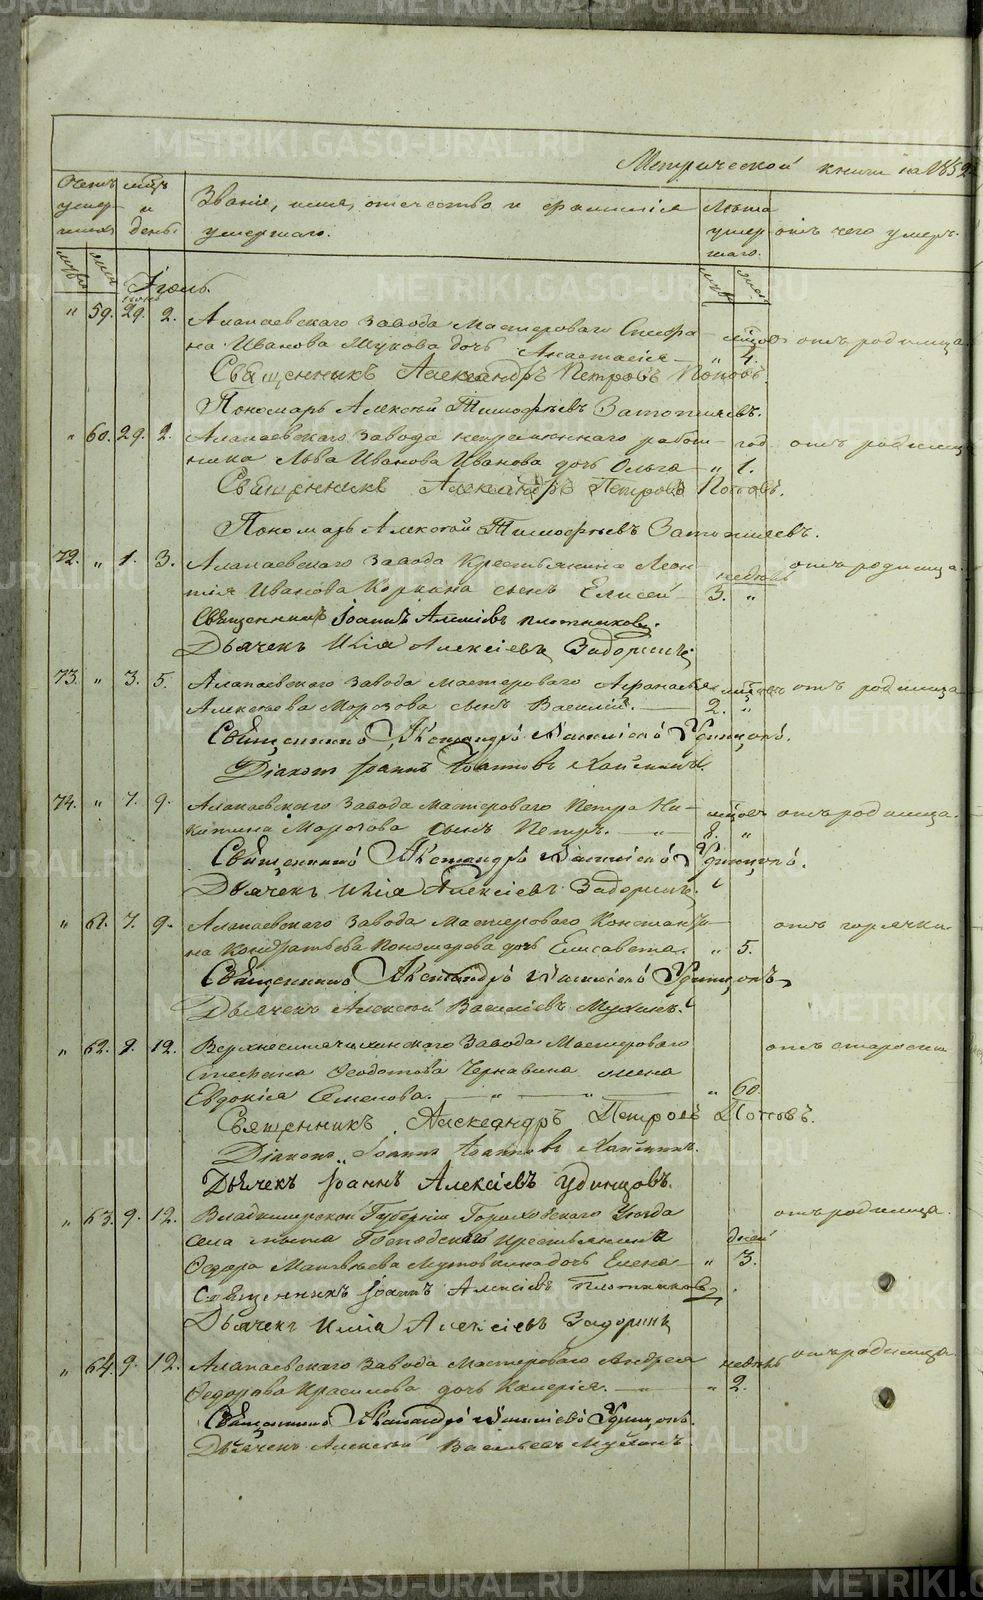 METRIKI.GASO-URAL.RU
Метрической книги на 1852
Счетъ умер- шихъ
мцъ и день
Званіе, имя, отечество и фамилія умершаго.
Лѣта умер- шаго.
отъ чего умеръ.
муж. жен.
муж. жен.
Іюль.
" 59. 29. 2. Алапаевскаго Завода Мастероваго Стефа-
на Иванова Мукова дочь Анастасія " 4. отъ родимца.
Священникъ Александръ Петровъ Поповъ.
Пономарь Алексѣй Тимофѣевъ Затопляевъ.
" 60. 29. 2. Алапаевскаго Завода непремѣннаго работ- год отъ родимца
ника Льва Иванова Иванова дочь Ольга " 1.
Священникъ Александръ Петровъ Поповъ.
Пономарь Алексѣй Тимофѣевъ Затопляевъ.
72. " 1. 3. Алапаевскаго Завода Крестьянина Леон- недѣль отъ родимца.
тія Иванова Коркина сынъ Елисей 3. "
Священникъ Іоаннъ Алексіевъ Плотниковъ.
Дьячекъ Илія Алексіевъ Задоринъ
73. " 3. 5. Алапаевскаго Завода мастероваго Афанасья отъ родимца
Алексѣева Морозова сынъ Василій. 2. "
Священникъ Александръ Василіевъ Удинцовъ.
Діаконъ Іоаннъ Іоанновъ
74. " 7. 9. Алапаевскаго Завода Мастероваго Петра Ни- отъ родимца.
китина Морозова сынъ Петръ. " 2. "
Священникъ Александръ Василіевъ Удинцовъ.
Дьячекъ Илія Алексіевъ Задоринъ.
" 61. 7. 9. Алапаевскаго Завода Мастероваго Константи- отъ горячки
на Кондратьева Пономарева дочь Елисавета. " 5.
Священникъ Александръ Василіевъ Удинцовъ
Дьячекъ Алексѣй Василіевъ Мухинъ.
" 62. 9. 12. Верхнесинячихинскаго Завода Мастероваго отъ старости
Стефана Ѳеодотова Чернавина жена
Евдокія Семенова. " " " 60.
Священникъ Александръ Петровъ Поповъ.
Діаконъ Іоаннъ Іоанновъ
Дьячекъ Іоаннъ Алексіевъ Удинцовъ.
" 63. 9. 12. Владимирской Губерніи Гороховскаго Уѣзда отъ родимца.
села Господскаго крестьянина дней
Ѳедора Матвѣева дочь Елена " 3.
Священникъ Іоаннъ Алексіевъ Плотниковъ
Дьячекъ Илія Алексіевъ Задоринъ
" 64. 9. 12. Алапаевскаго Завода Мастероваго Андрея недѣль отъ родимца.
Ѳедорова Красилова дочь Калерія. " " 2.
Священникъ Александръ Василіевъ Удинцовъ.
Дьячекъ Алексѣй Васильевъ Мухинъ.